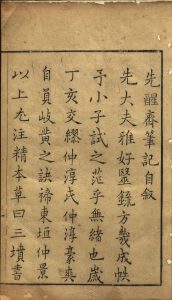 先醒齋筆記自叙
先大夫雅好醫錄方幾成帙
予小子試之茫乎無緒也歲
丁亥交繆仲淳氏仲淳豪爽
自員岐黃之訣禘東垣仲景
以上尤注精本草曰三墳書